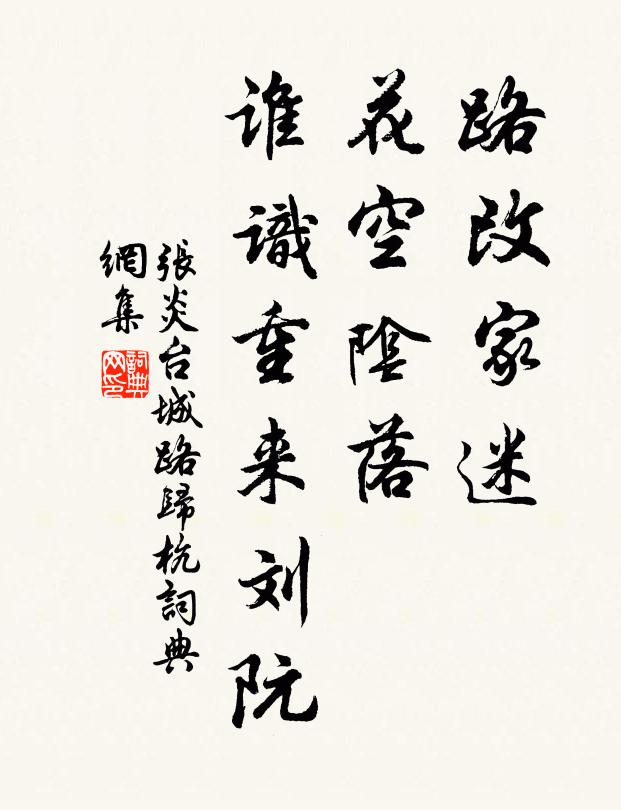 路改家迷
花空陰落
谁識重来刘阮
張炎台城路歸杭詞典
網集
詞典
网印